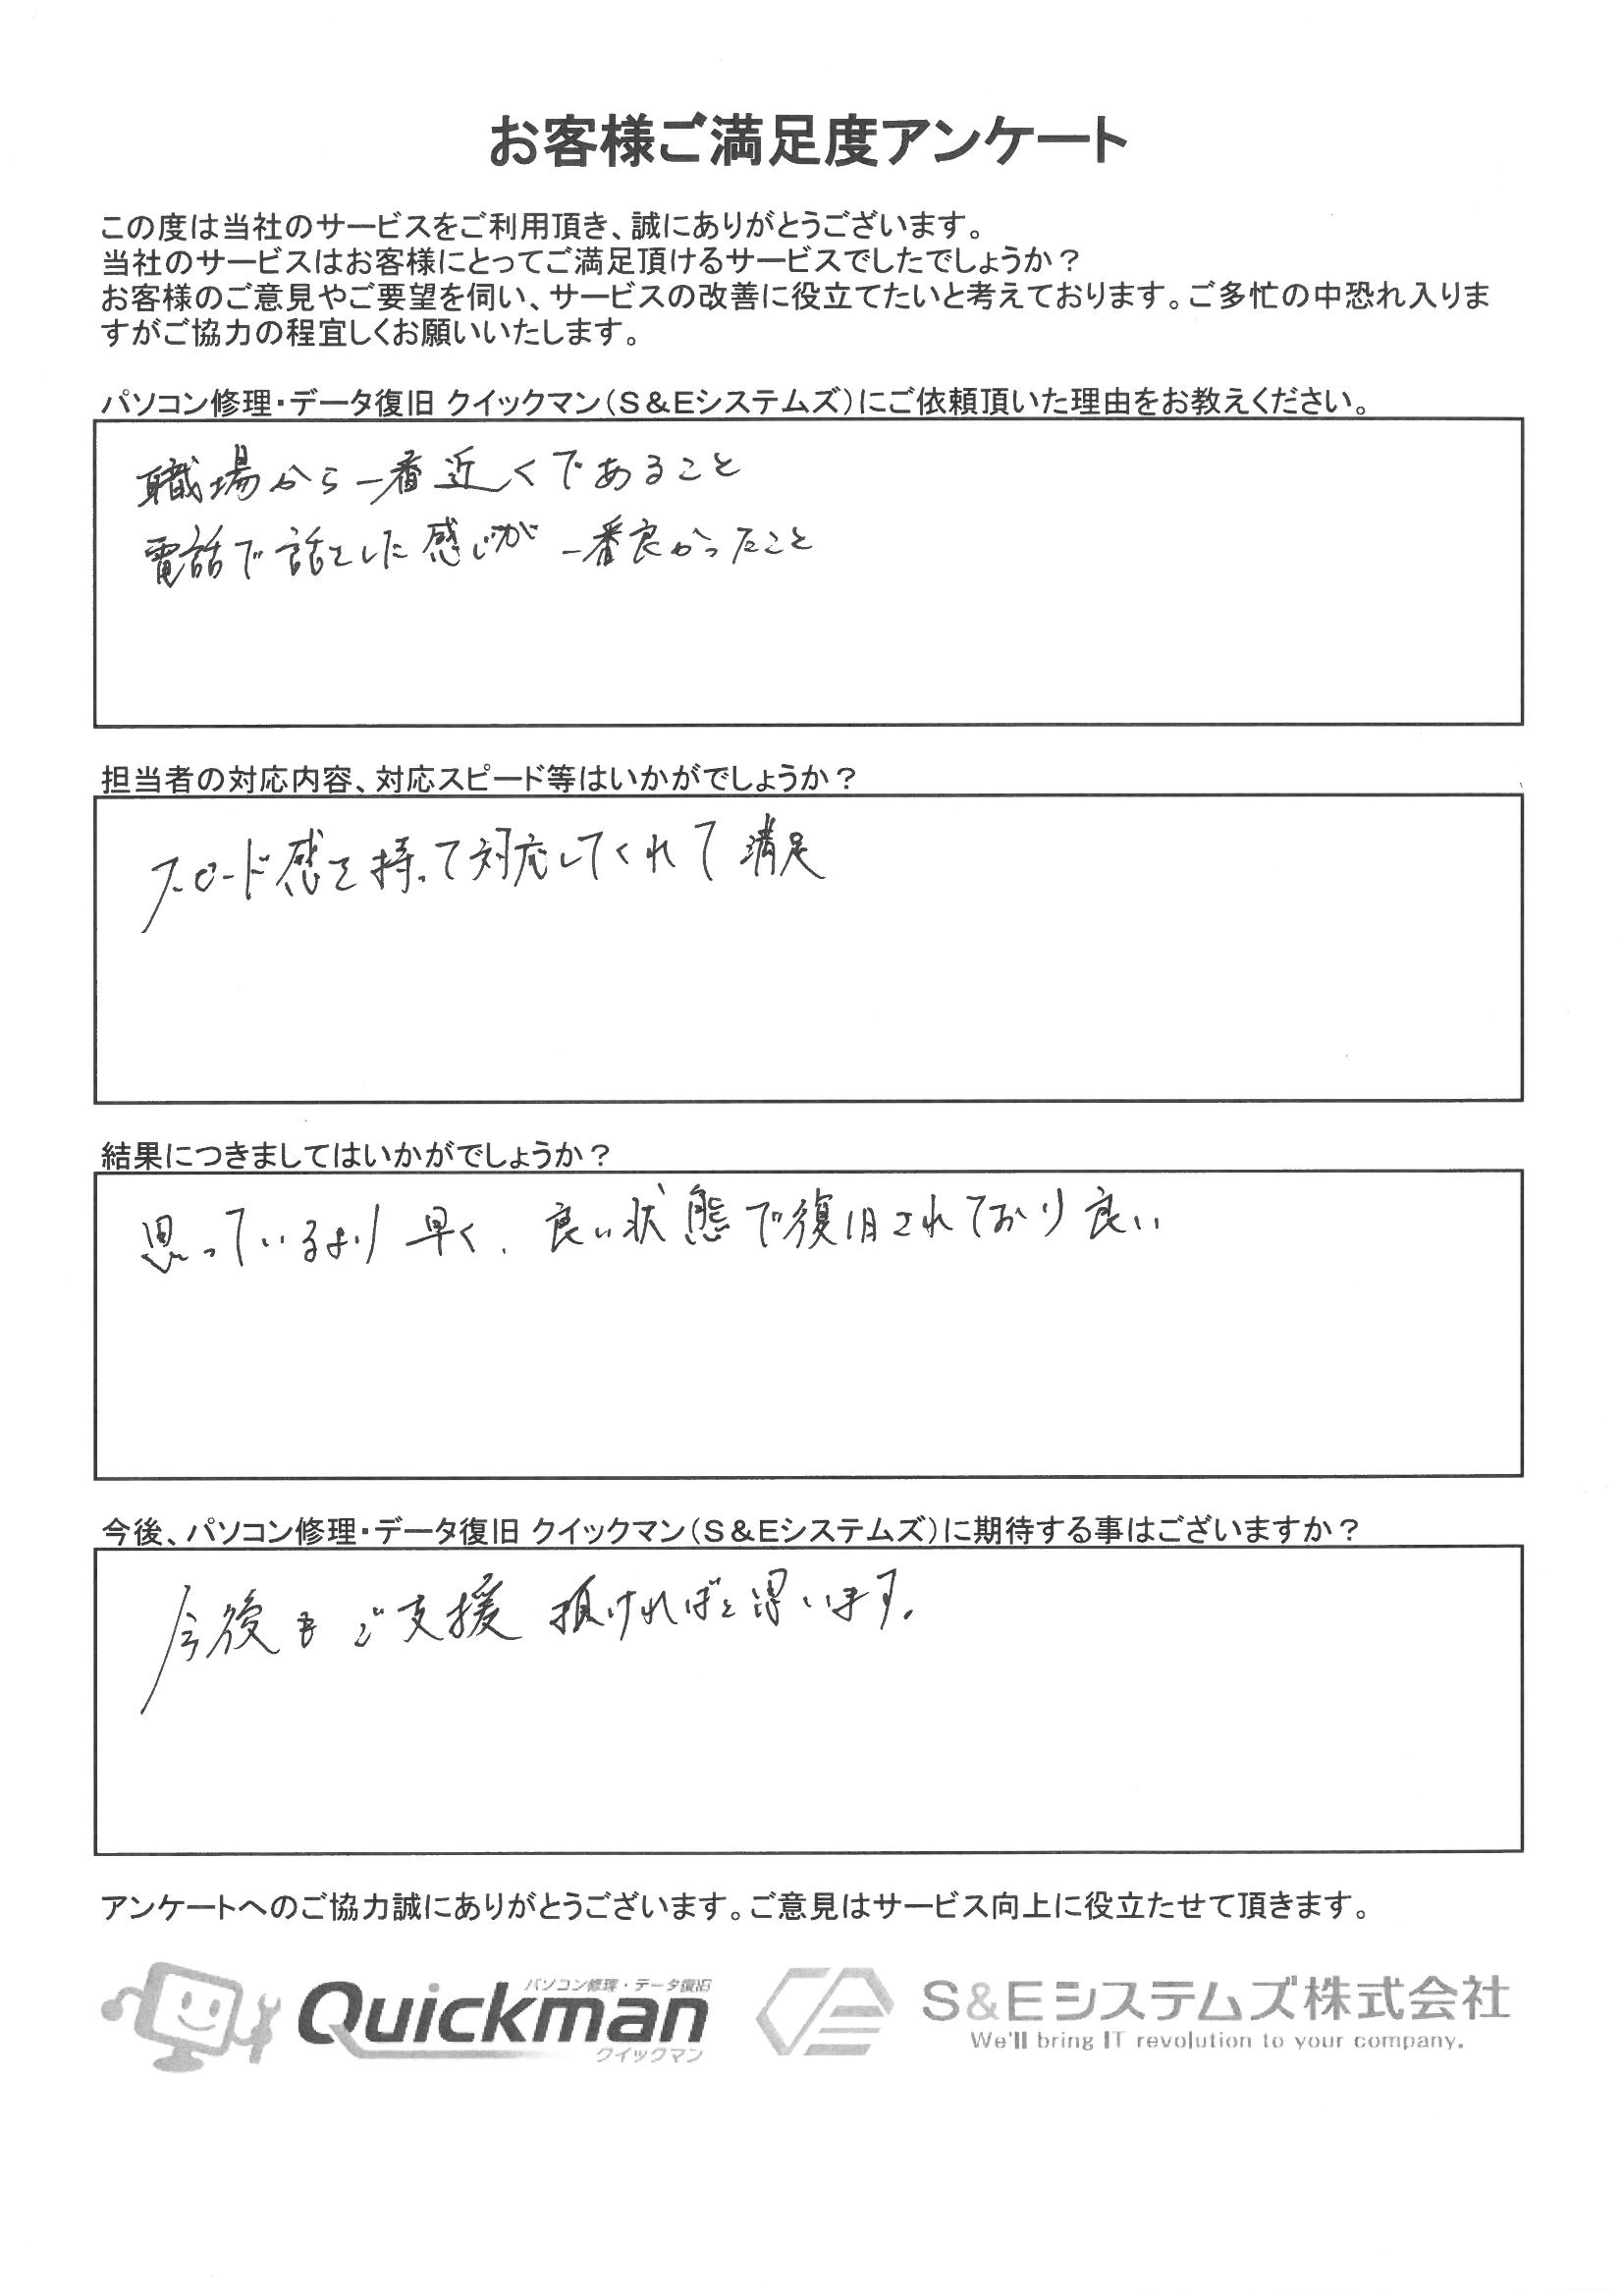 お客様ご満足度アンケート
この度は当社のサービスをご利用頂き、誠にありがとうございます。
当社のサービスはお客様にとってご満足頂けるサービスでしたでしょうか？
お客様のご意見やご要望を伺い、サービスの改善に役立てたいと考えております。ご多忙の中恐れ入りま
すがご協力の程宜しくお願いいたします。
パソコン修理・データ復旧 クイックマン（S＆Eシステムズ）にご依頼頂いた理由をお教えください。
職場から一番近くであること
電話で話をした感じが 一番良かったこと
担当者の対応内容、対応スピード等はいかがでしょうか？
スピード感を持って対応してくれて満足
結果につきましてはいかがでしょうか？
思っているより早く、良い状態で復旧されており良い
今後、パソコン修理・データ復旧 クイックマン（S＆Eシステムズ）に期待する事はございますか？
今後もご支援 頂ければと思います。
アンケートへのご協力誠にありがとうございます。ご意見はサービス向上に役立たせて頂きます。
パソコン修理・データ復旧
Quickman
クイックマン
S&Eシステムズ株式会社
We'll bring IT revolution to your company.